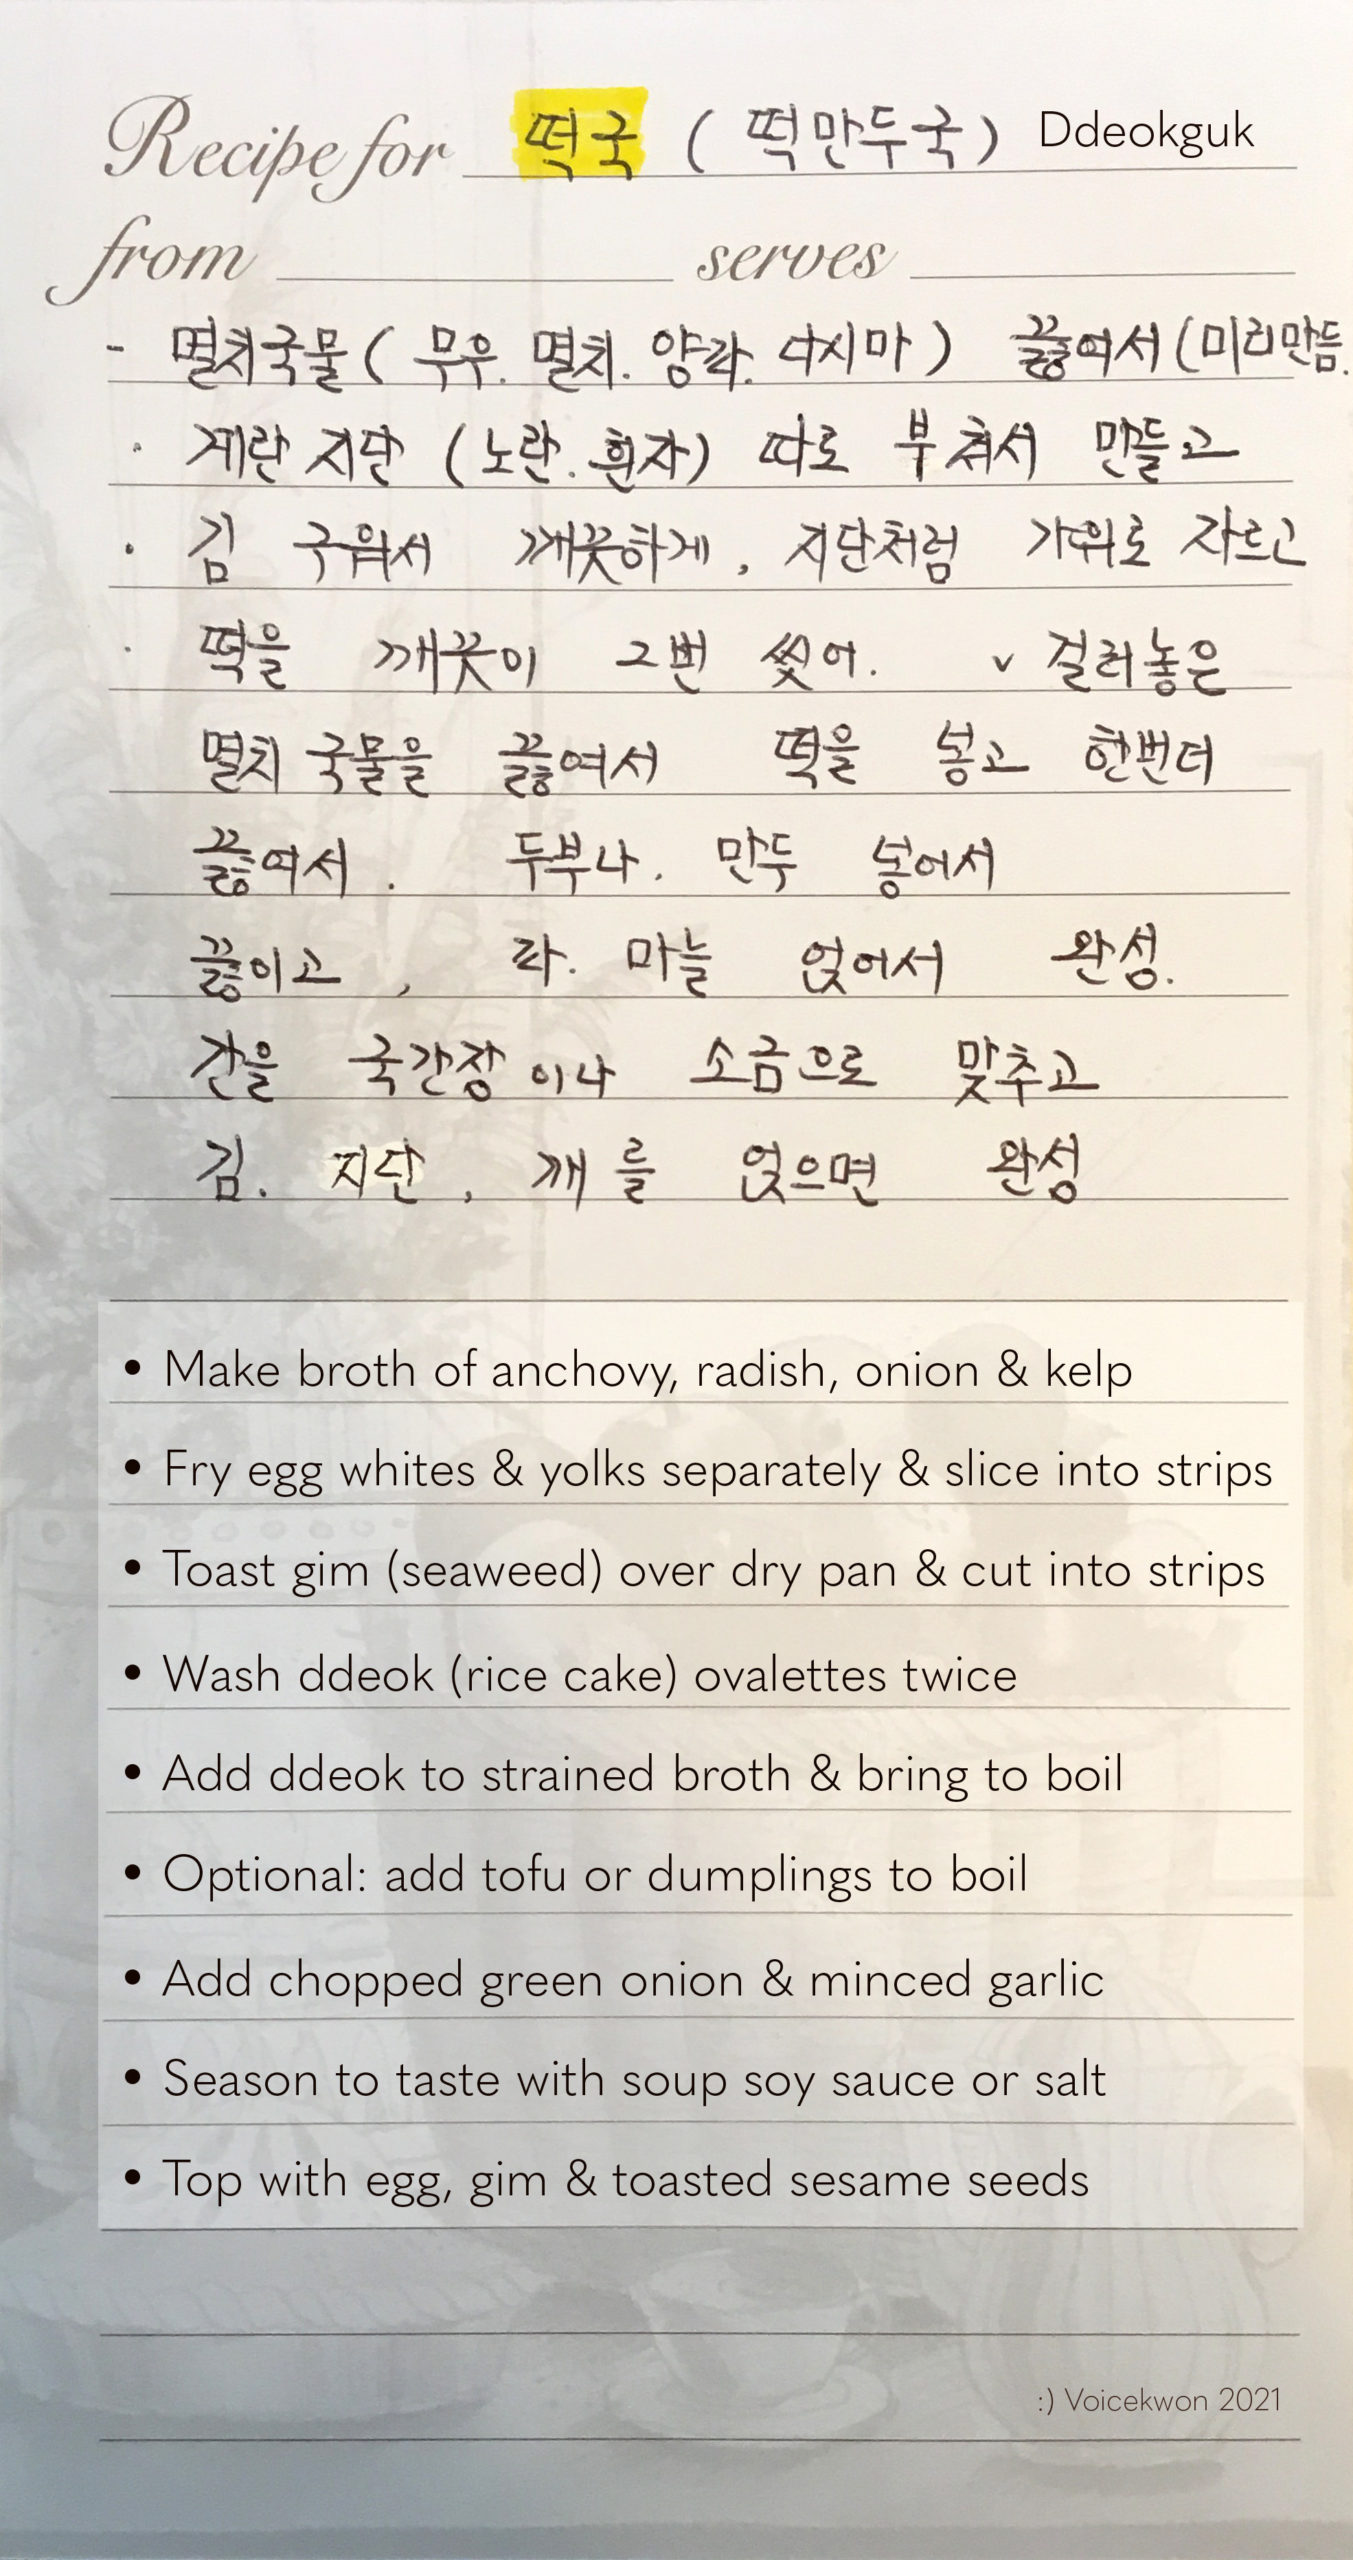 Recipe for 떡국 ( 떡만두국 ) Ddeokguk
from serves
- 멸치국물 ( 무우. 멸치. 양파. 다시마 ) 끓여서 (미리만듬.
· 계란 지단 ( 노란. 흰자 ) 따로 부쳐서 만들고
· 김 구워서 깨끗하게, 지단처럼 가위로 자르고
· 떡을 깨끗이 2번 씻어. v 걸러놓은
멸치 국물을 끓여서 떡을 넣고 한번더
끓여서. 두부나. 만두 넣어서
끓이고, 파. 마늘 얹어서 완성.
간을 국간장이나 소금으로 맞추고
김. 지단, 깨를 얹으면 완성
• Make broth of anchovy, radish, onion & kelp
• Fry egg whites & yolks separately & slice into strips
• Toast gim (seaweed) over dry pan & cut into strips
• Wash ddeok (rice cake) ovalettes twice
• Add ddeok to strained broth & bring to boil
• Optional: add tofu or dumplings to boil
• Add chopped green onion & minced garlic
• Season to taste with soup soy sauce or salt
• Top with egg, gim & toasted sesame seeds
:) Voicekwon 2021